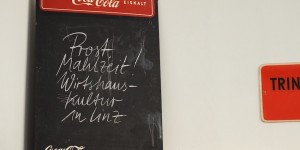 Coca-Cola
EISKALT
Prost
Mahlzeit!
Wirtshaus-
kultur
in Linz
Coca-Cola
TRIN